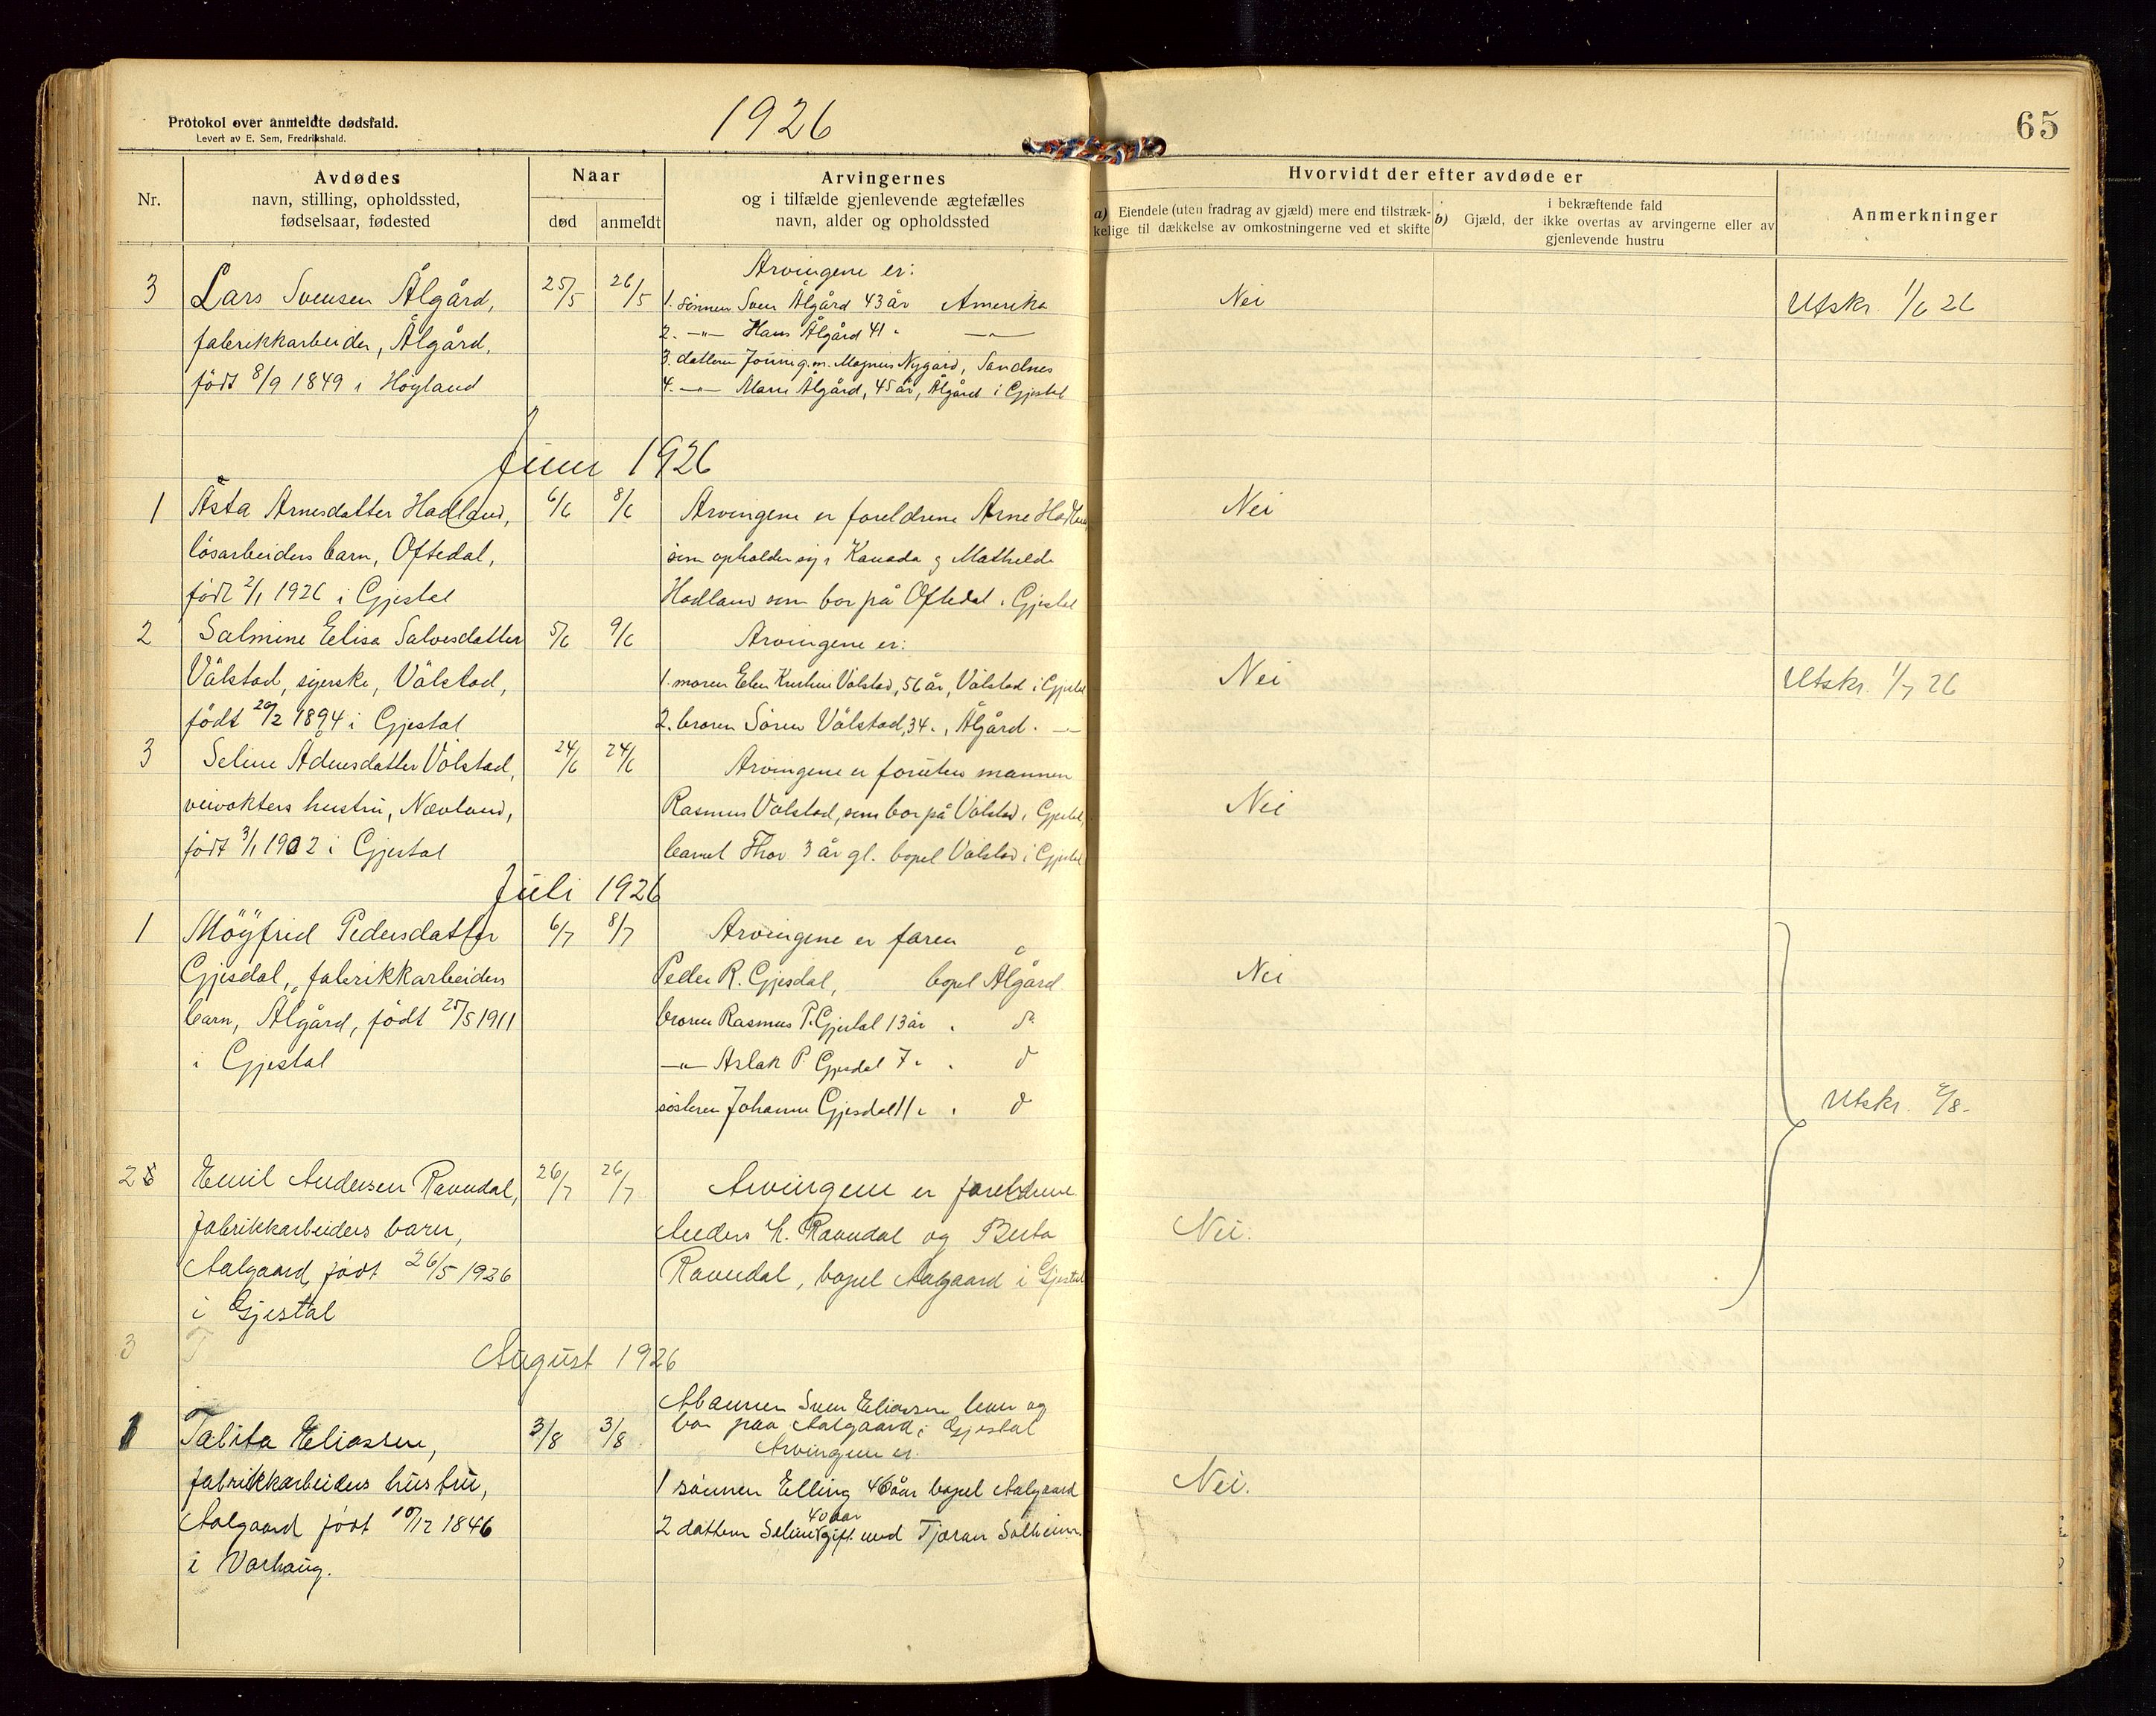 Protokol over anmeldte dødsfald.
Levert av E. Sem, Fredrikshald.
1926
65
Nr.
Avdødes
navn, stilling, opholdssted,
fødselsaar, fødested
Naar
død
anmeldt
Arvingernes
og i tilfælde gjenlevende ægtefælles
navn, alder og opholdssted
Hvorvidt der efter avdøde er
a) Eiendele (uten fradrag av gjæld) mere end tilstræk-
kelige til dækkelse av omkostningerne ved et skifte
i bekræftende fald
b) Gjæld, der ikke overtas av arvingerne eller av
gjenlevende hustru
Anmerkninger
3
Lars Svensen Ålgård,
fabrikkarbeider, Ålgård,
født 8/9 1849 i Høyland
25/5
26/5
Arvingene er:
1. sønnen Sven Ålgård 43 år Amerika
2. -"- Hans Ålgård 41 " -"-
3. datteren g.m. Magnus Nygård, Sandnes
4. -"- Marie Ålgård, 45 år, Ålgård i Gjestal
Nei
Utskr. 1/6 26
Juni 1926
1
Åsta Arnesdatter Hadland,
løsarbeiders barn, Oftedal,
født 2/1 1926 i Gjestal
6/6
8/6
Arvingene er foreldrene Arne Hadland
som opholder sig i Kanada og Mathilde
Hadland som bor på Oftedal i Gjestal
Nei
2
Salmine Elisa Salvesdatter
Vålstad, syerske, Vålstad,
født 20/2 1894 i Gjestal
5/6
9/6
Arvingene er:
1. moren Elen Kristine Vålstad, 56 år, Vålstad i Gjestal
2. broren Sören Vålstad, 34 " , Ålgård " -"-
Nei
Utskr. 1/7 26
3
Seline Ådnesdatter Vålstad,
veivokters hustru, Nævland,
født 3/1 1902 i Gjestal
24/6
24/6
Arvingene er foruten mannen
Rasmus Vålstad, som bor på Vålstad i Gjestal,
barnet Thor 3 år gl. bopel Vålstad i Gjestal
Nei
Juli 1926
1
Möyfrid Pedersdatter
Gjesdal, fabrikkarbeiders
barn, Ålgård, født 25/5 1911
i Gjestal
6/7
8/7
Arvingene er faren
Peder R. Gjesdal, bopel Ålgård
broren Rasmus P. Gjestal 13 år " do
-"- Aslak P. Gjesdal 7 " " do
søsteren Johanne Gjesdal 11 " " do
Nei
Utskr. 2/8-
2
Emil Andersen Ravndal,
fabrikkarbeiders barn,
Aalgaard, født 26/5 1926
i Gjestal
26/7
26/7
Arvingene er foreldrene
Anders H. Ravndal og Berta
Ravndal, bopel Aalgaard i Gjestal
Nei.
3 T
August 1926
1
Talita Eliassen,
fabrikkarbeiders hustru,
Aalgaard født 10/12 1846
i Varhaug.
3/8
3/8
Mannen Sven Eliassen lever og
bor paa Aalgaard i Gjestal
Arvingene er:
1 sønnen Elling 46 aar bopel Aalgaard
2 datteren Seline 40 aar gift med Tjøran Solheim
Nei.